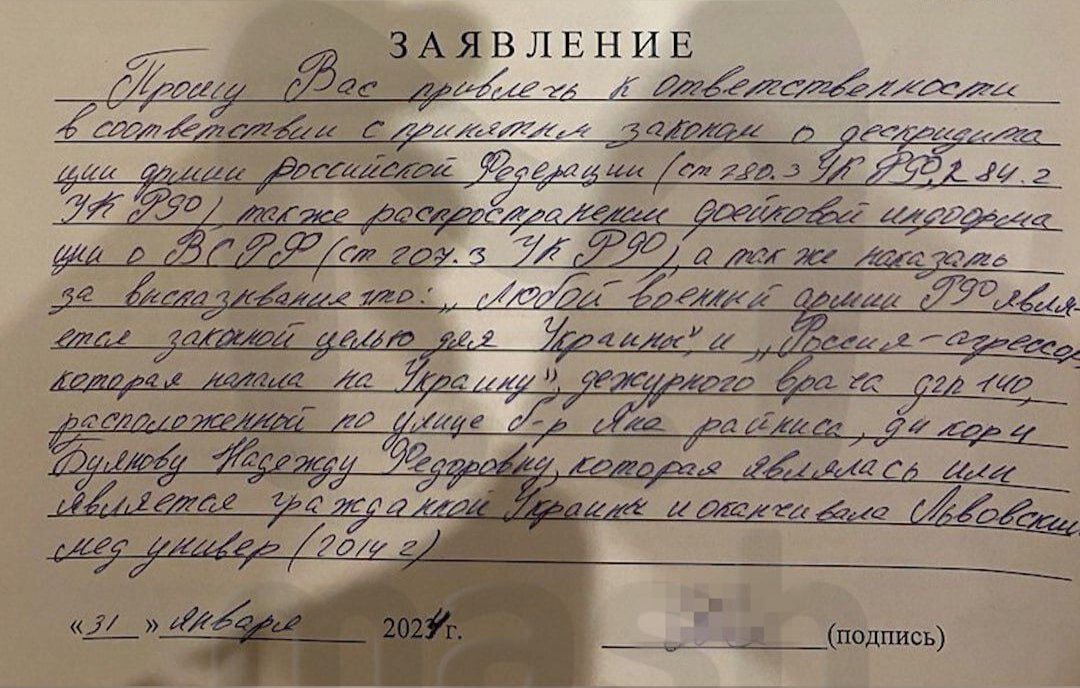 ЗАЯВЛЕНИЕ
Прошу Вас привлечь к ответственности
в соответствии с принятым законом о дескридита
ции армии Российской Федерации (ст 280.3 УК РФ, 284.2
УК РФ) также распространением фейковой информа
ции о ВС РФ (ст 207.3 УК РФ), а так же наказать
за высказывание что: „Любой военный армии РФ явля-
ется законной целью для Украины", и „Россия-агрессор,
которая напала на Украину", дежурного врача дгп 140,
расположенной по улице б-р Яна райниса, д 4 кор 4
Буянову Надежду Федоровну, которая являлась или
является гражданкой Украины и оканчивала Львовский
мед универ (2014 г)
« 31 » января 2024 г.
(подпись)
mash